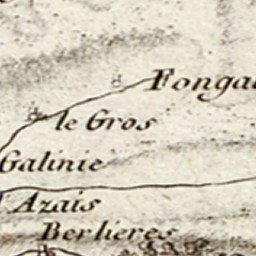 Fonga
le Gros
Galinie
Azais
Berlieres